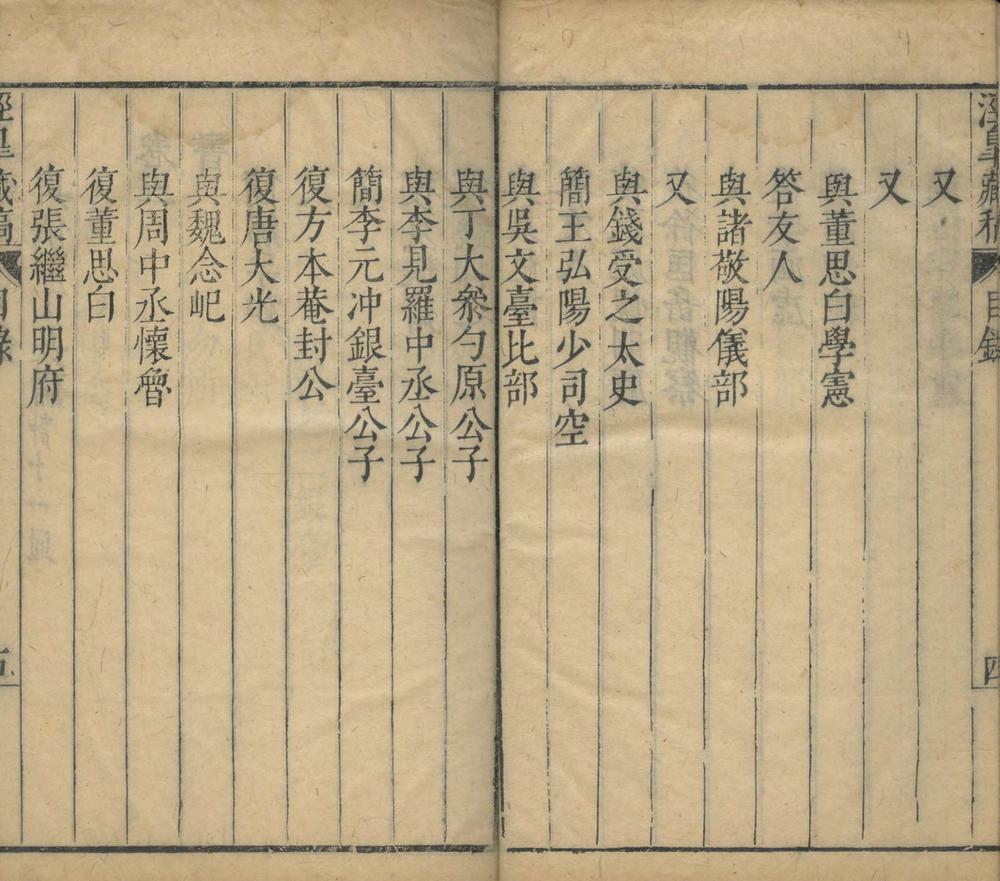 涇臯藏稿 目錄 四
又
又
與董思白學憲
答友人
與諸敬陽儀部
又
與錢受之太史
簡王弘陽少司空
與吳文臺比部
與丁大叅勺原公子
與李見羅中丞公子
簡李元冲銀臺公子
復方本菴封公
復唐大光
與魏念屺
與周中丞懷魯
復董思白
復張繼山明府
涇臯藏稿 目錄 五